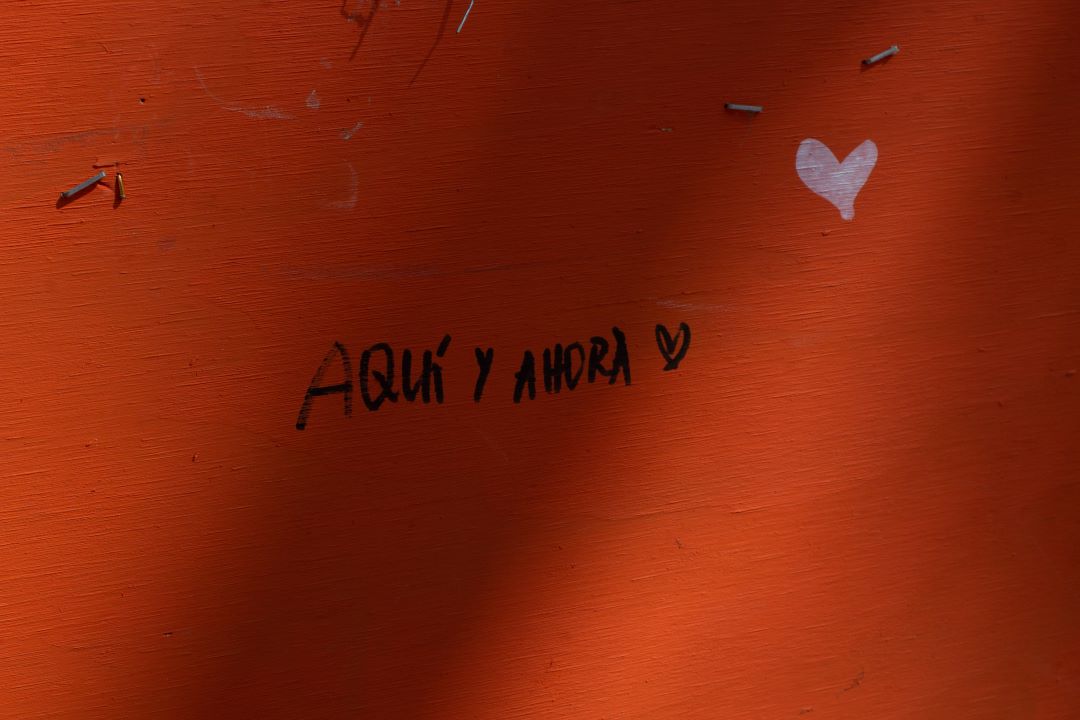 AQUÍ Y AHORA ♡